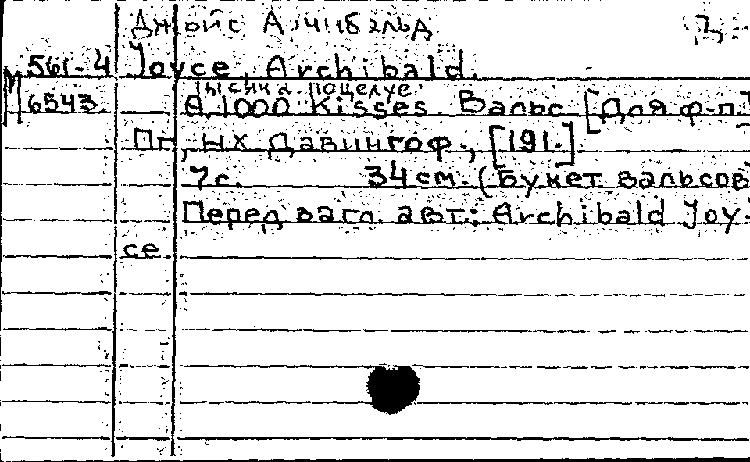 Джойс Арчибальд
561-4 Joyce, Archibald.
Тысяча поцелуе
М 6543 A 1000 Kisses. Вальс [Для ф-п.]
Пг, Давингоф., [191.].
7 с. 34 см. (Букет вальсов
Перед загл. авт.: Archibald Joy-
ce.